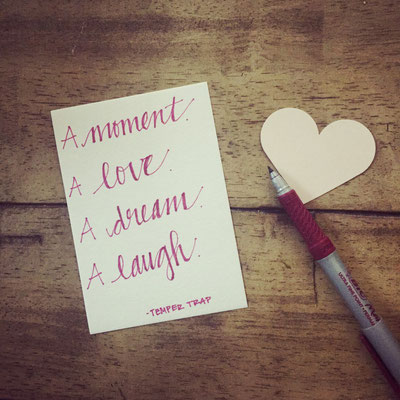 A moment.
A love.
A dream.
A laugh.
-TEMPER TRAP